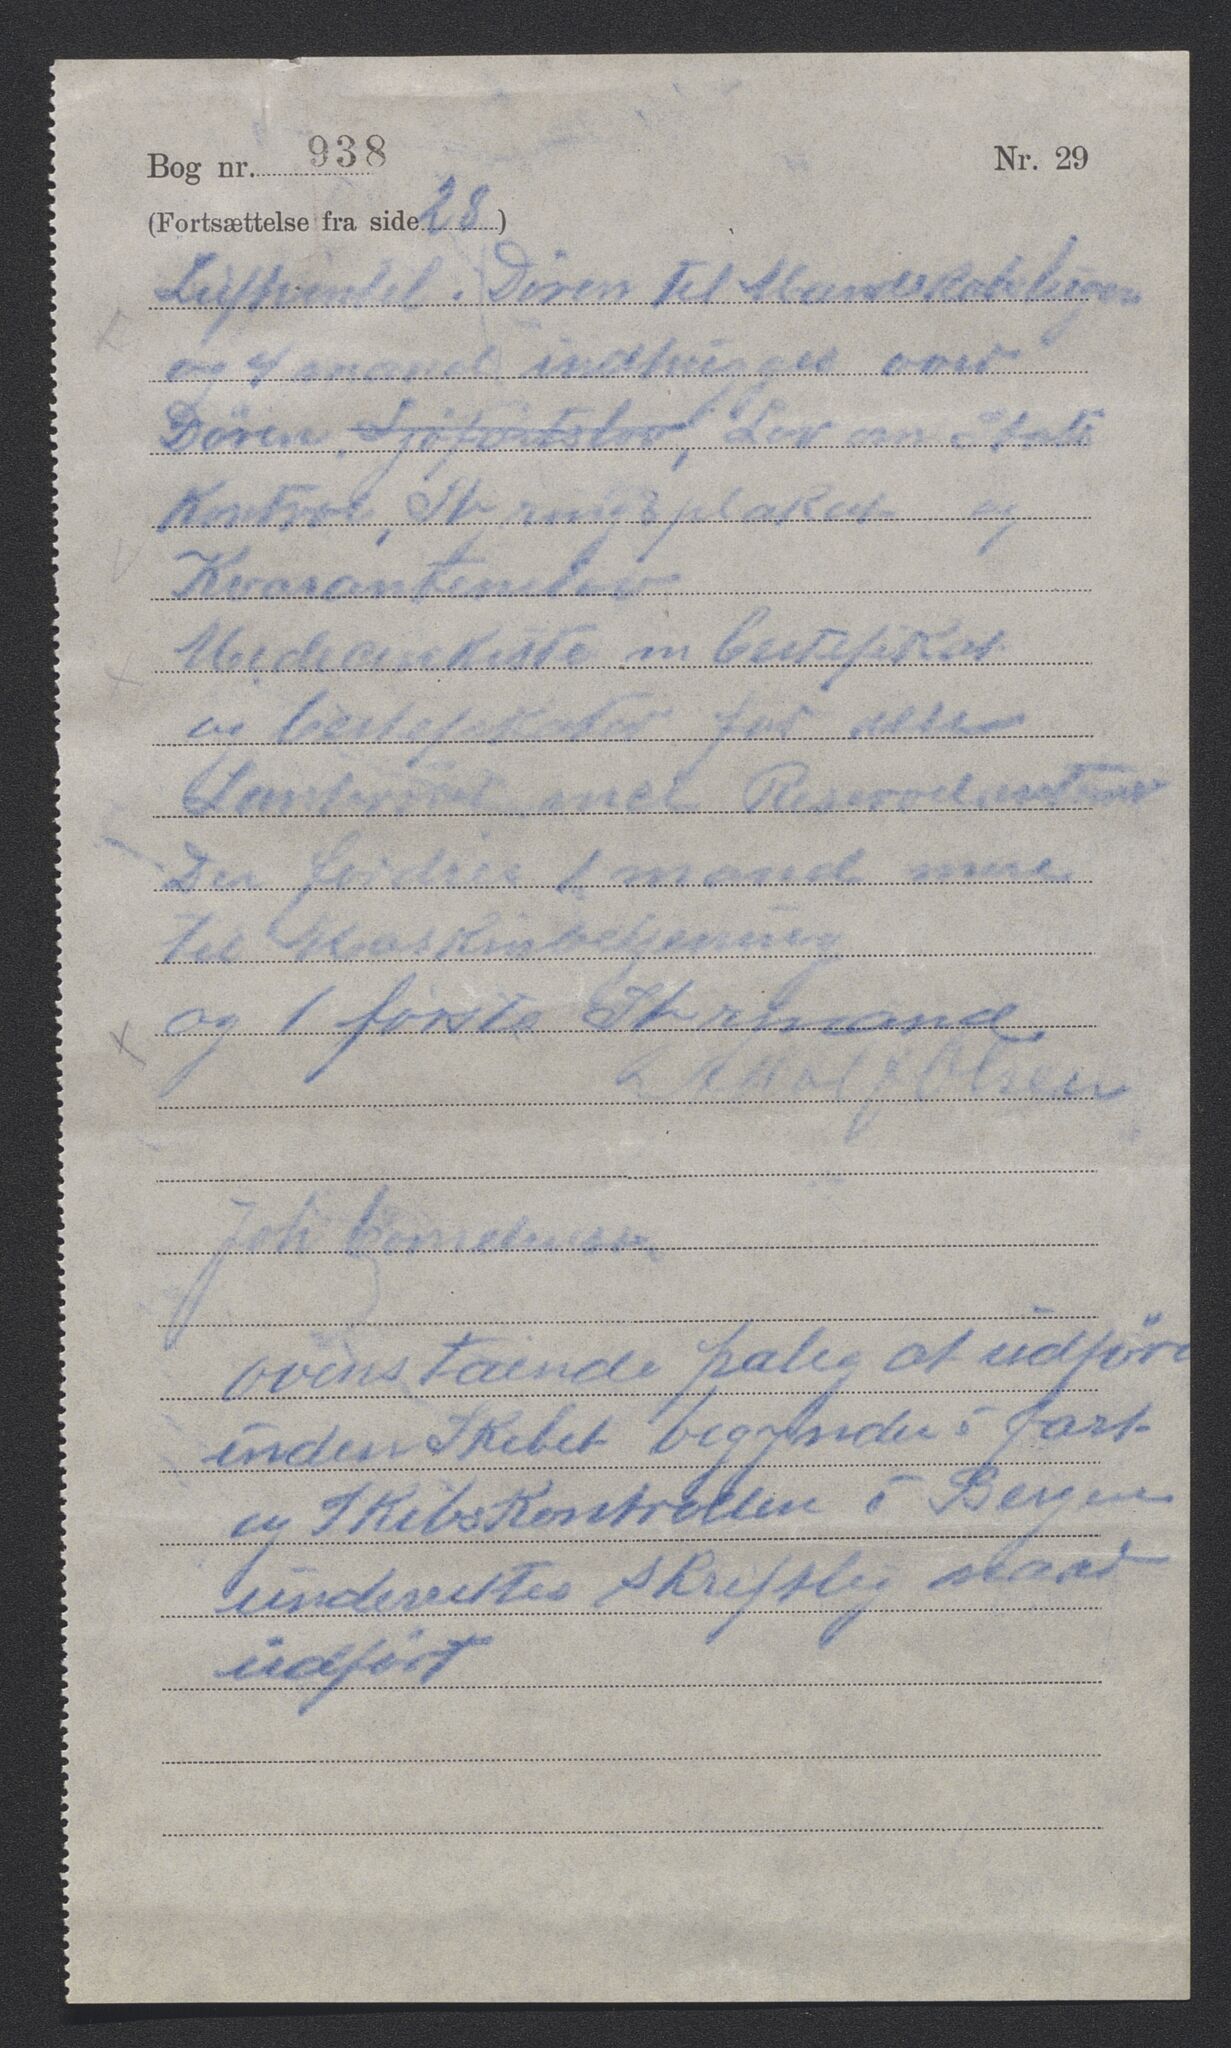 Bog nr. 938
Nr. 29
(Fortsættelse fra side 28)
Luftventel i Døren til
og 4 mand indhugges over
Døren, Sjøfartslov, Lov om Stats
Kontrol, Styringsplakat og
Kvarantenelov
Medecinkiste m Certefikat
og Certefikater for alle
Lanterner med
Der fordres 1 mand mere
til Maskinbetjening
og 1 første Styrmand
Olsen
Joh Cornelius
ovenstaaende paleg at udføre
inden Skibet begynder i fart
og Skibskontrollen i Bergen
underettes skriftlig naar
udført